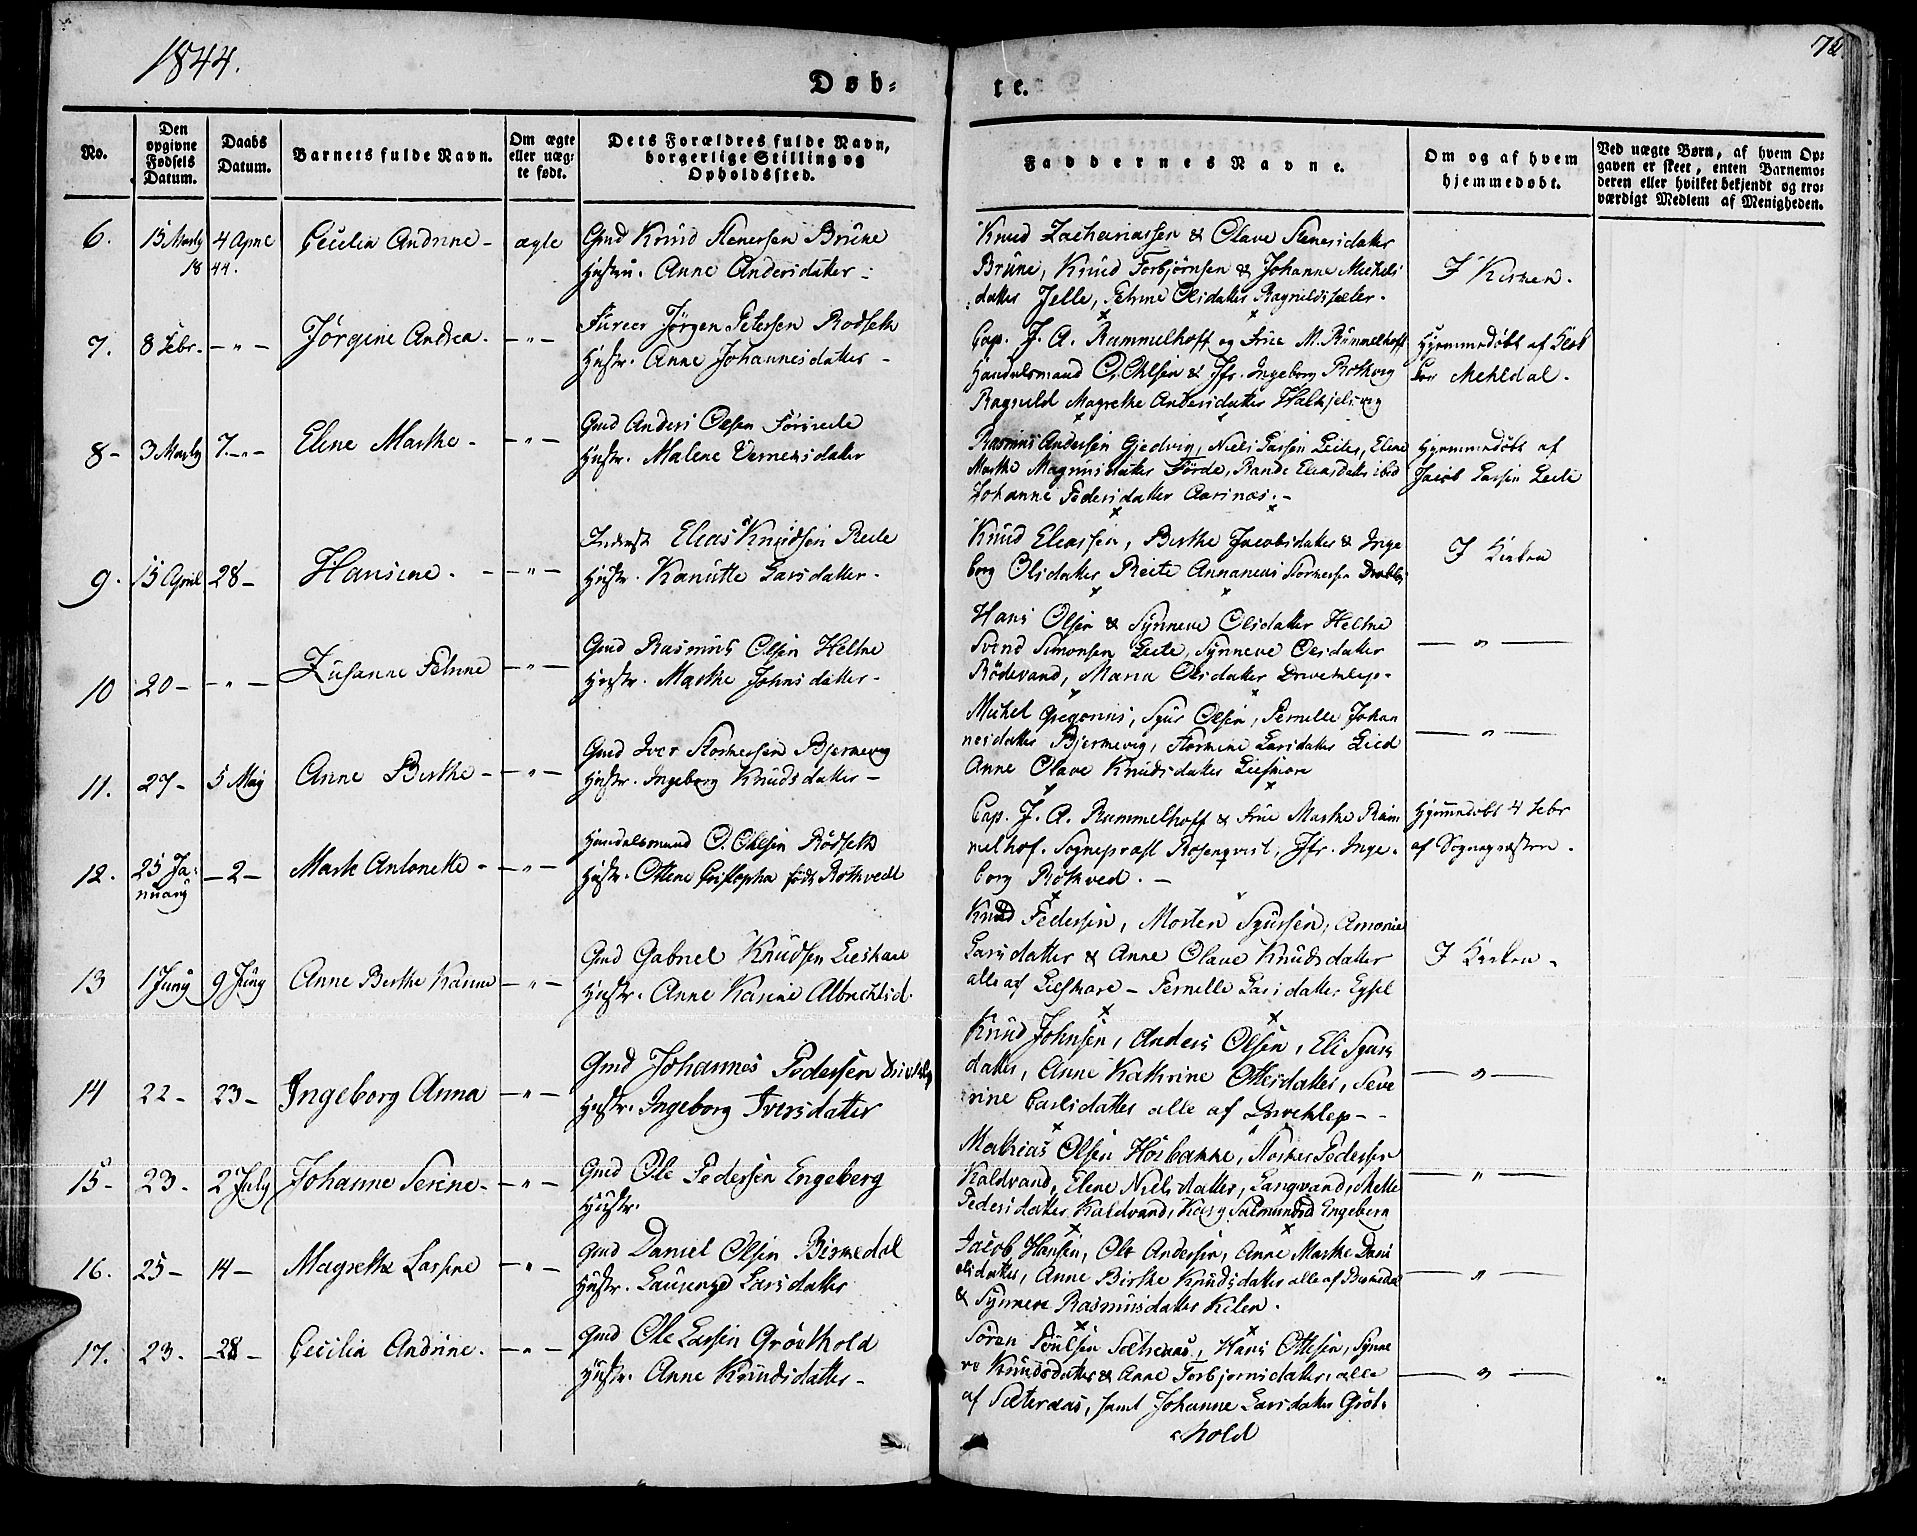 1844.
72
Døb-
te.
No.
Den opgivne Fødsels Datum.
Daabs Datum.
Barnets fulde Navn.
Om ægte eller uæg- te født.
Dets Forældres fulde Navn, borgerlige Stilling og Opholdssted.
Faddernes Navne.
Om og af hvem hjemmedøbt.
Ved uægte Børn, af hvem Op- gaven er skeet, enten Barnemo- deren eller hvilket bekjendt og tro- værdigt Medlem af Menigheden.
6. 15 Marty 4 Apre Cecilia Andrine - ægte Gmd Knud Stenersen Brune
18 44. Hustru. Anne Andersdatter
Knud Zachariassen & Olave Stenersdatter
Brune, Knud Torbjørnsen & Johanne Michels
datter Jelle, Petrine Olsdatter Ragnildsæter. I Kirken.
7. 8 Febr. - " - Jørgine Andrea. - " - Fureer Jørgen Petersen Rødseth
Hustr. Anne Johannesdatter -
Cap. J. A. Rummelhoff og Frue M. Rummelhoff
Handelsmand O. Ohlsen & Jfr. Ingeborg Rothvig
Ragnild Magrethe Andersdatter Halkjelsvig
Hjemmedøbt af
Mehldal.
8 - 3 Marty 7. - " - Elene Marthe - - " - Gmd Anders Olsen
Hustr. Malene
Rasmus Andersen Gjedvig, Niels Larsen Leite, Elene
Marthe Magnusdatter Førde, Rande Eliasdatter ibid
Johanne Pedersdatter Aarsnæs. -
Hjemmedøbt af
Jacob Larsen Leite
9. 15 April 28 - Hansine. - " - Inderst Elias Knudsen Reite
Hustr. Kanutte Larsdatter -
Knud Eliassen, Birthe Jacobsdatter & Inge
borg Olsdatter Reite Annaneas Stormersen
I Kirken
10 20 - - " - Susanne Petrine - " - Gmd Rasmus Olsen Heltne
Hustr. Marthe Johnsdatter -
Hans Olsen & Synneve Olsdatter Heltne
Svend Simonsen Leite, Synneve Olsdatter
Rødevand, Maria Olsdatter Drivehlep.
- " -
11. 27 - 5 May Anne Birthe - - " - Gmd Iver Stormersen Bjørnevig
Hustr. Ingeborg Knudsdatter -
Michel Gregorius, Sjur Olsen, Pernille Johan
nesdatter Bjørnevig, Larsdatter Lied
Anne Olave Knudsdatter Liesmore
- " -
12. 25 Ja- - 2 - Marte Antonette - - " - Handelsmand O. Ohlsen Rødseth
nuary Hustr. Ottene Cristopha født Rothvedt
Cap. J. A. Rummelhoff & Frue Marthe Rüm
melhof. Sognepræst Rosenqvist, Jfr. Inge-
borg Rothved. -
Hjemmedøbt 4 Febr
af Sognepræsten.
13 1 Juny 9 Juny Anne Birthe Karine - " - Gmd Gabriel Knudsen Lieshare
Hustr. Anne Karine Albrechtsd.
Knud Pedersen, Morten Sjursen,
Larsdatter & Anne Olave Knudsdatter
alle af Liesmore - Pernille Larsdatter
I Kirken -
14 22 - 23 - Ingeborg Anna - " - Gmd Johannes Pedersen
Hustr. Ingeborg Iversdatter
Knud Johnsen, Anders Olsen, Eli Sjurs
datter, Anne Kathrine Ottersdatter, Seve
rine Carlsdatter alle af Drivehlep - -
- " -
15 - 23. 2 July Johanne Serine - - " - Gmd Ole Pedersen Engeberg
Hustr.
Mathias Olsen Høibakke, Pedersen
Kaldvand, Elene Nielsdatter, Langvand, Mette
Pedersdatter Kaldvand, Kary Salmundsd Engeberg
- " -
16. 25 - 14 - Magrethe Larsine - " - Gmd Daniel Olsen Birkedal
Hustr. Larsdatter
Jacob Hansen, Ole Andersen, Anne Marthe Dani
elsdatter, Anne Birthe Knudsdatter alle af Birkedal
& Synneve Rasmusdatter Kilen.
- " -
17. 23. - 28 - Cecilia Andrine. - " - Gmd Ole Larsen Grøthold
Hustr. Anne Knudsdatter -
Søren Poulsen Sætrenæs, Hans Ottesen, Synne
ve Knudsdatter & Anne Torbjørnsdatter, alle
af Sæternæs, samt Johanne Larsdatter Grøt-
hold
- " -